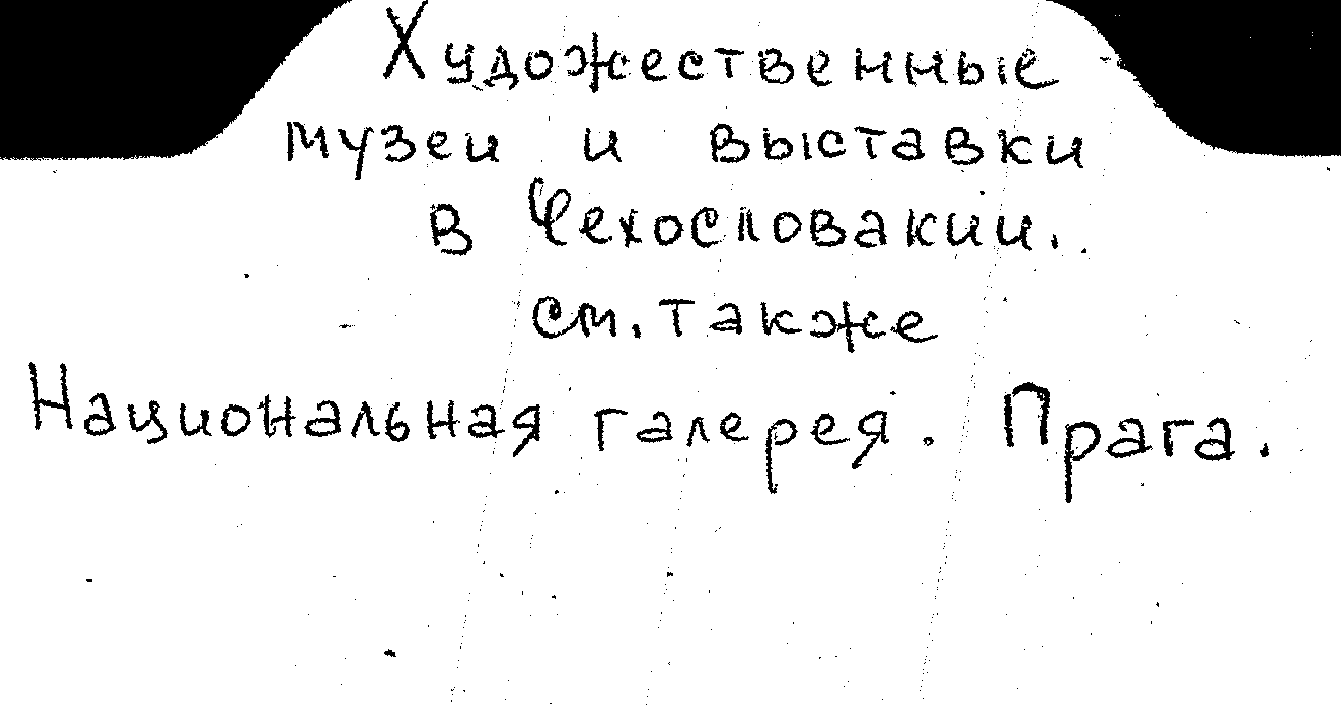 Художественные
музеи и выставки
в Чехословакии.
см. также
Национальная галерея. Прага.